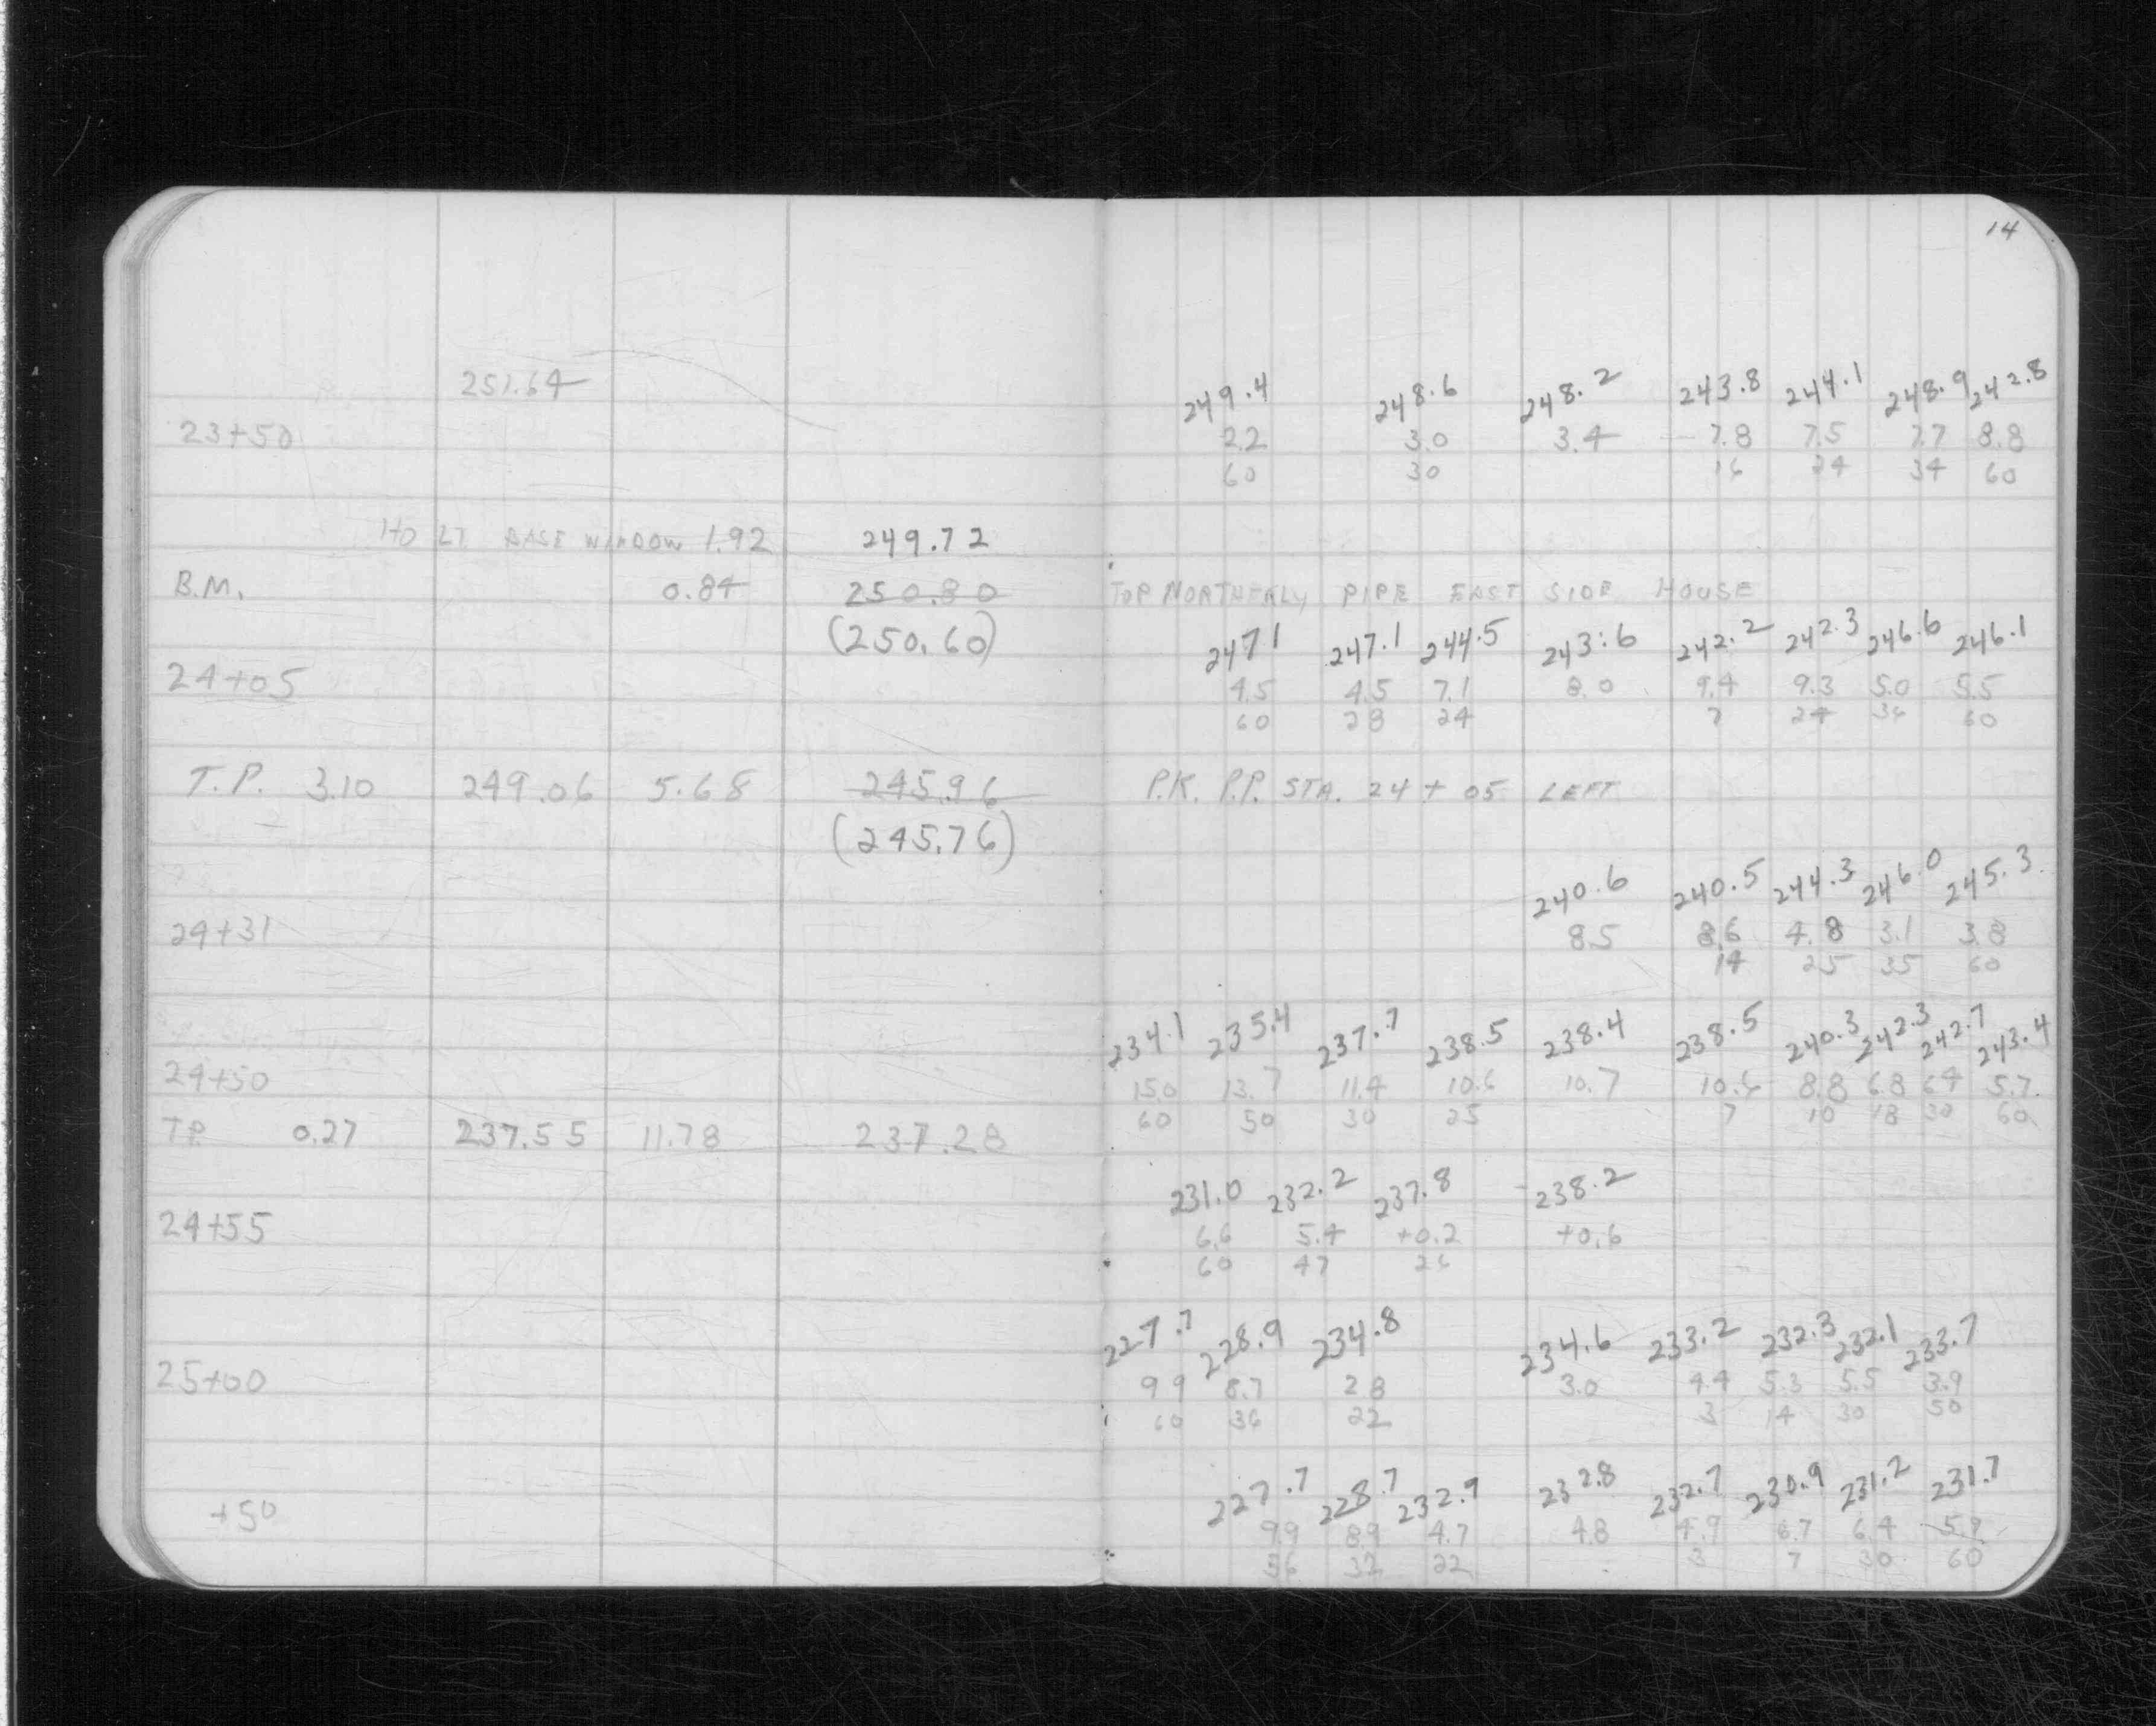 14
251.64
249.4 248.6 248.2 243.8 244.1 248.9 242.8
23+50 2.2 3.0 3.4 7.8 7.5 7.7 8.8
60 30 16 24 34 60
HO LT. BASE WINDOW 1.92 249.72
B.M. 0.84 250.80 TOP NORTHERLY PIPE EAST SIDE HOUSE
(250.60)
247.1 247.1 244.5 243.6 242.2 242.3 246.6 246.1
24+05 4.5 4.5 7.1 8.0 9.4 9.3 5.0 5.5
60 28 24 7 24 36 60
T.P. 3.10 249.06 5.68 245.96 P.K. P.P. STA. 24+05 LEFT
(245.76)
240.6 240.5 244.3 246.0 245.3
24+31 8.5 8.6 4.8 3.1 3.8
14 25 35 60
234.1 235.4 237.7 238.5 238.4 238.5 240.3 242.3 242.7 243.4
24+50 15.0 13.7 11.4 10.6 10.7 10.6 8.8 6.8 6.4 5.7
60 50 30 25 7 10 18 30 60
T.P. 0.27 237.55 11.78 237.28
231.0 232.2 237.8 238.2
24+55 6.6 5.4 +0.2 +0.6
60 47 26
227.7 228.9 234.8 234.6 233.2 232.3 232.1 233.7
25+00 9.9 8.7 2.8 3.0 4.4 5.3 5.5 3.9
60 36 22 3 14 30 50
227.7 228.7 232.9 232.8 232.7 230.9 231.2 231.7
+50 9.9 8.9 4.7 4.8 4.9 6.7 6.4 5.9
56 32 22 3 7 30 60